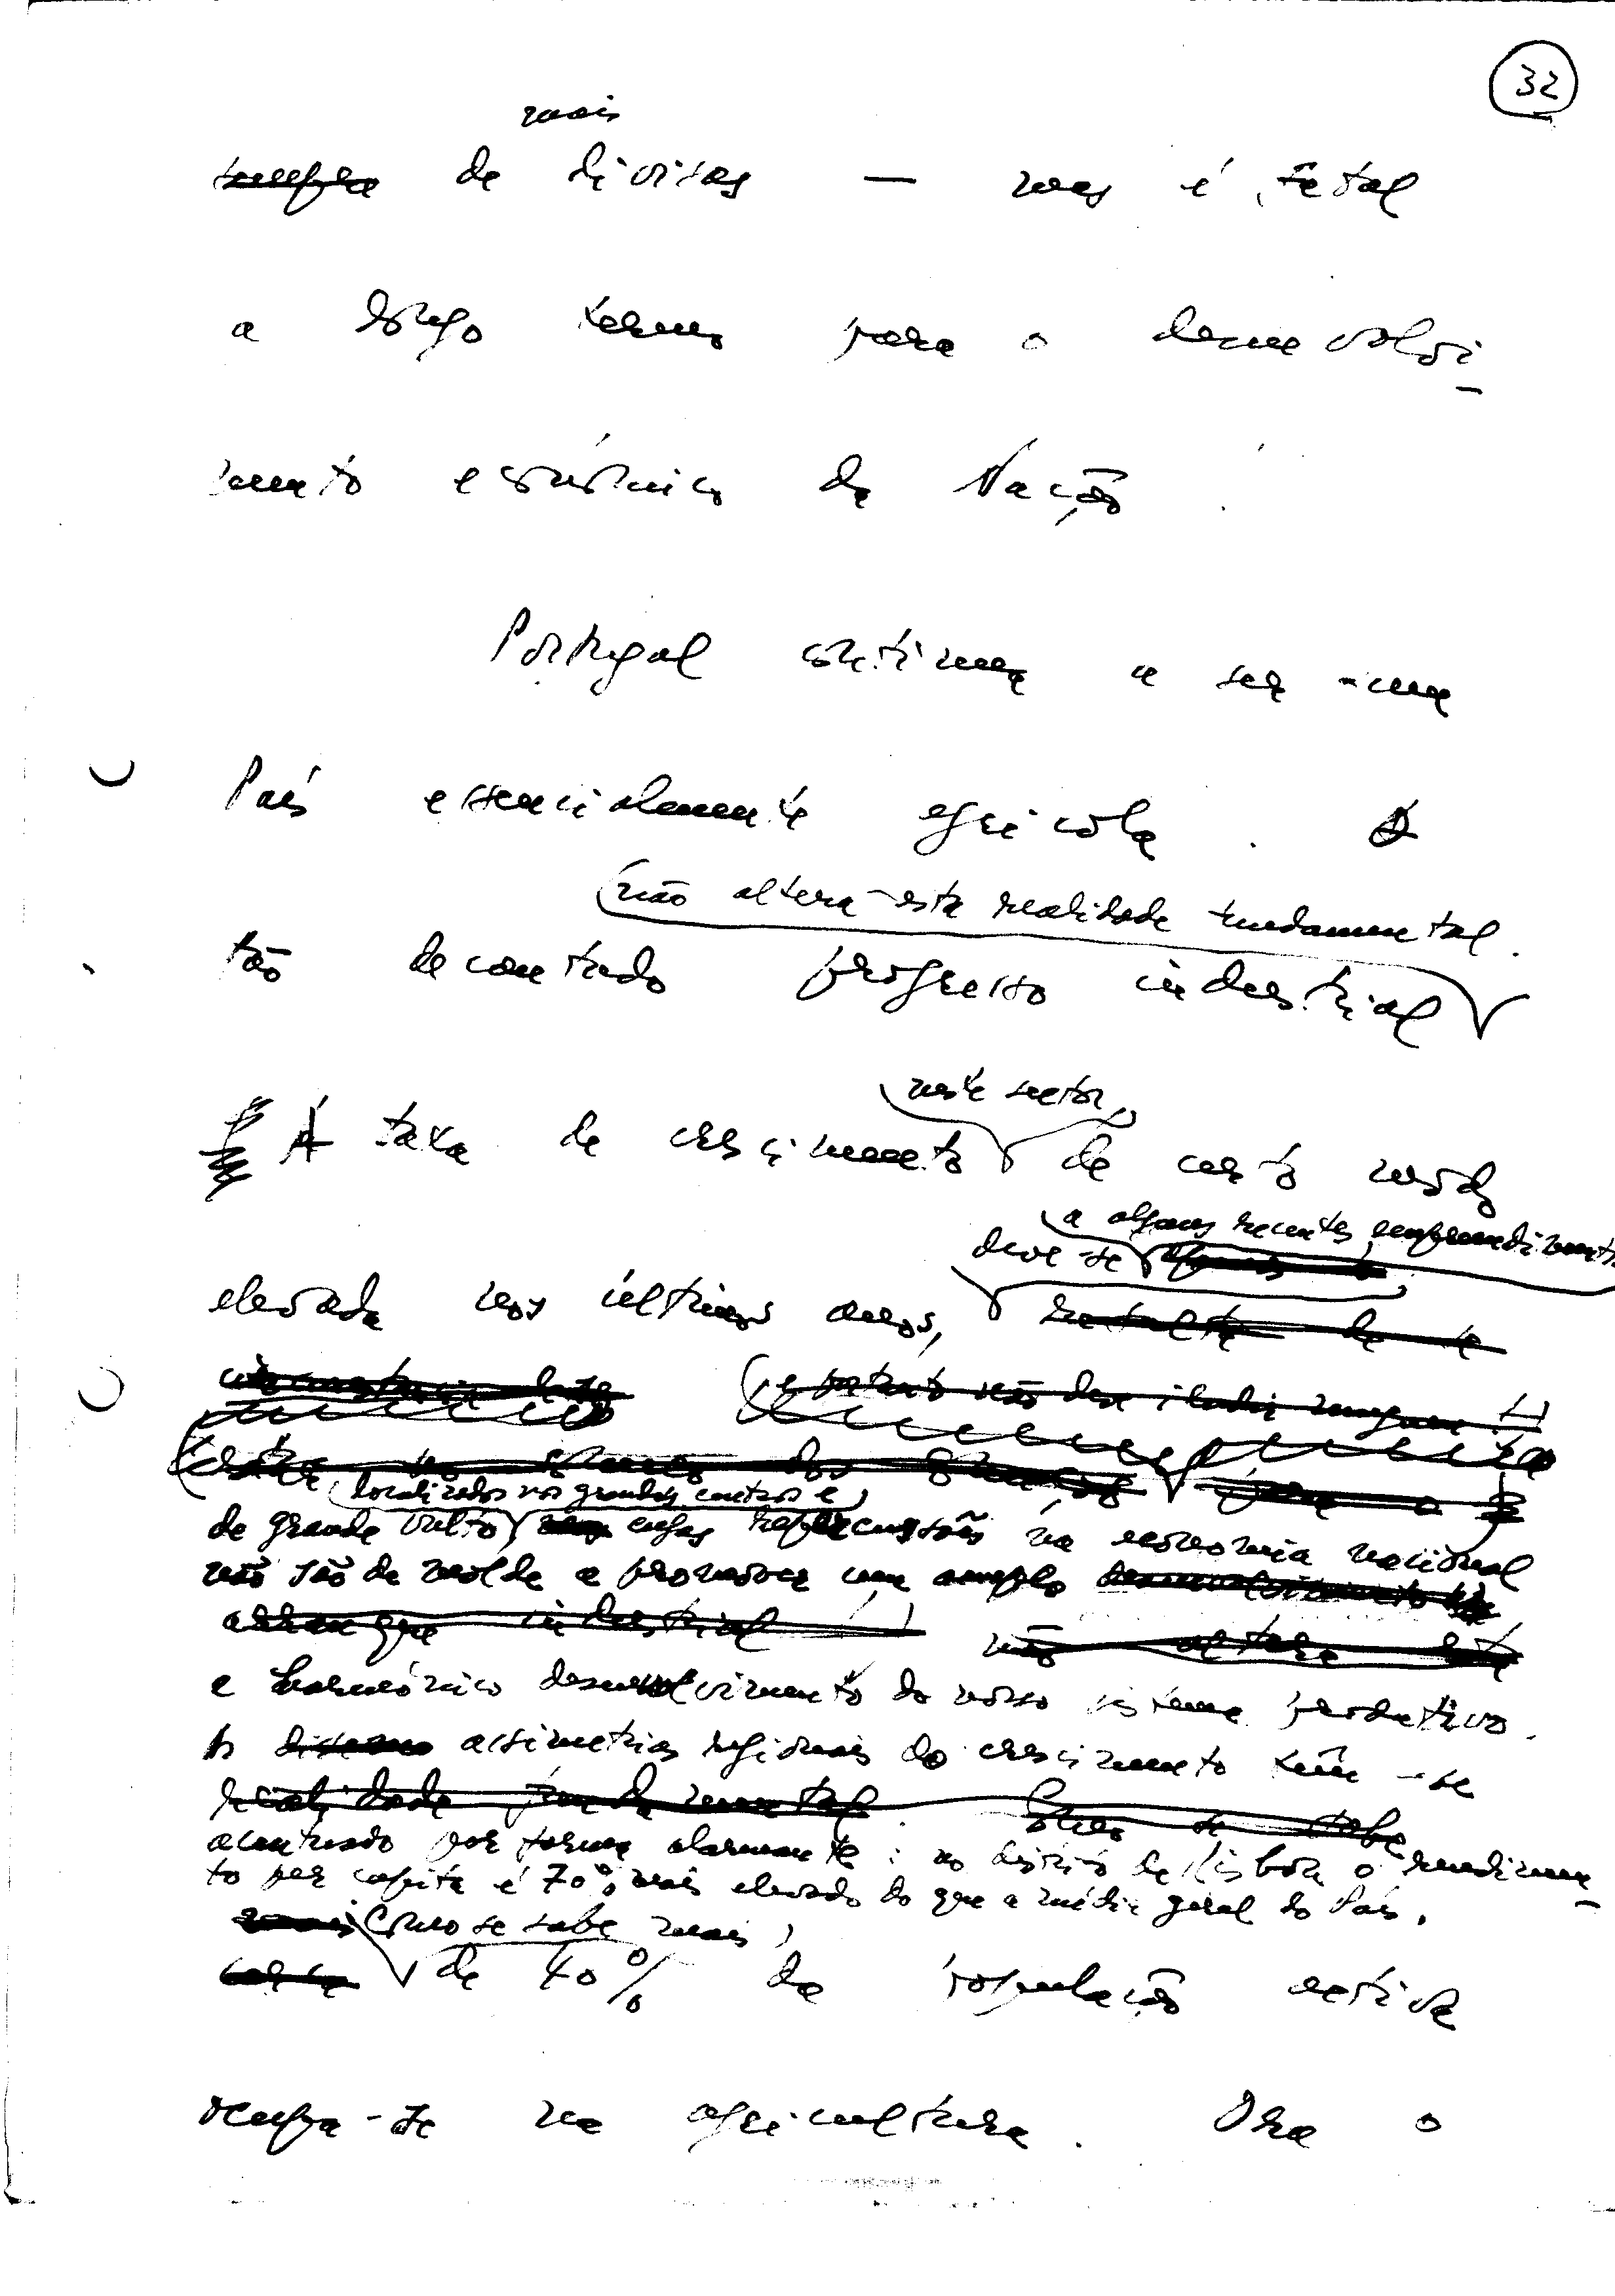 32
mais
sempre de divisas — mas é fatal
a longo termo para o desenvolvi-
mento económico da Nação.
Portugal continua a ser um
País essencialmente agrícola. O
não altera esta realidade fundamental.
tão decantado progresso industrial
neste sector,
A taxa de crescimento de certo modo
a alguns recentes empreendimentos
deve-se
elevada nos últimos anos, resulta de
e portanto não deve iludir ninguém
localizados nos grandes centros e
de grande vulto cujas repercussões na economia nacional
não são de molde a promover um amplo desenvolvimento
arranque industrial não altera esta
e harmónico desenvolvimento do nosso sistema produtivo.
As assimetrias regionais do crescimento têm-se
realidade fundamental. Como se sabe
acentuado por forma alarmante: no distrito de Lisboa o rendimen-
to per capita é 70% mais elevado do que a média geral do País.
mais Como se sabe mais
cerca de 40% da população activa
ocupa-se na agricultura. Ora o